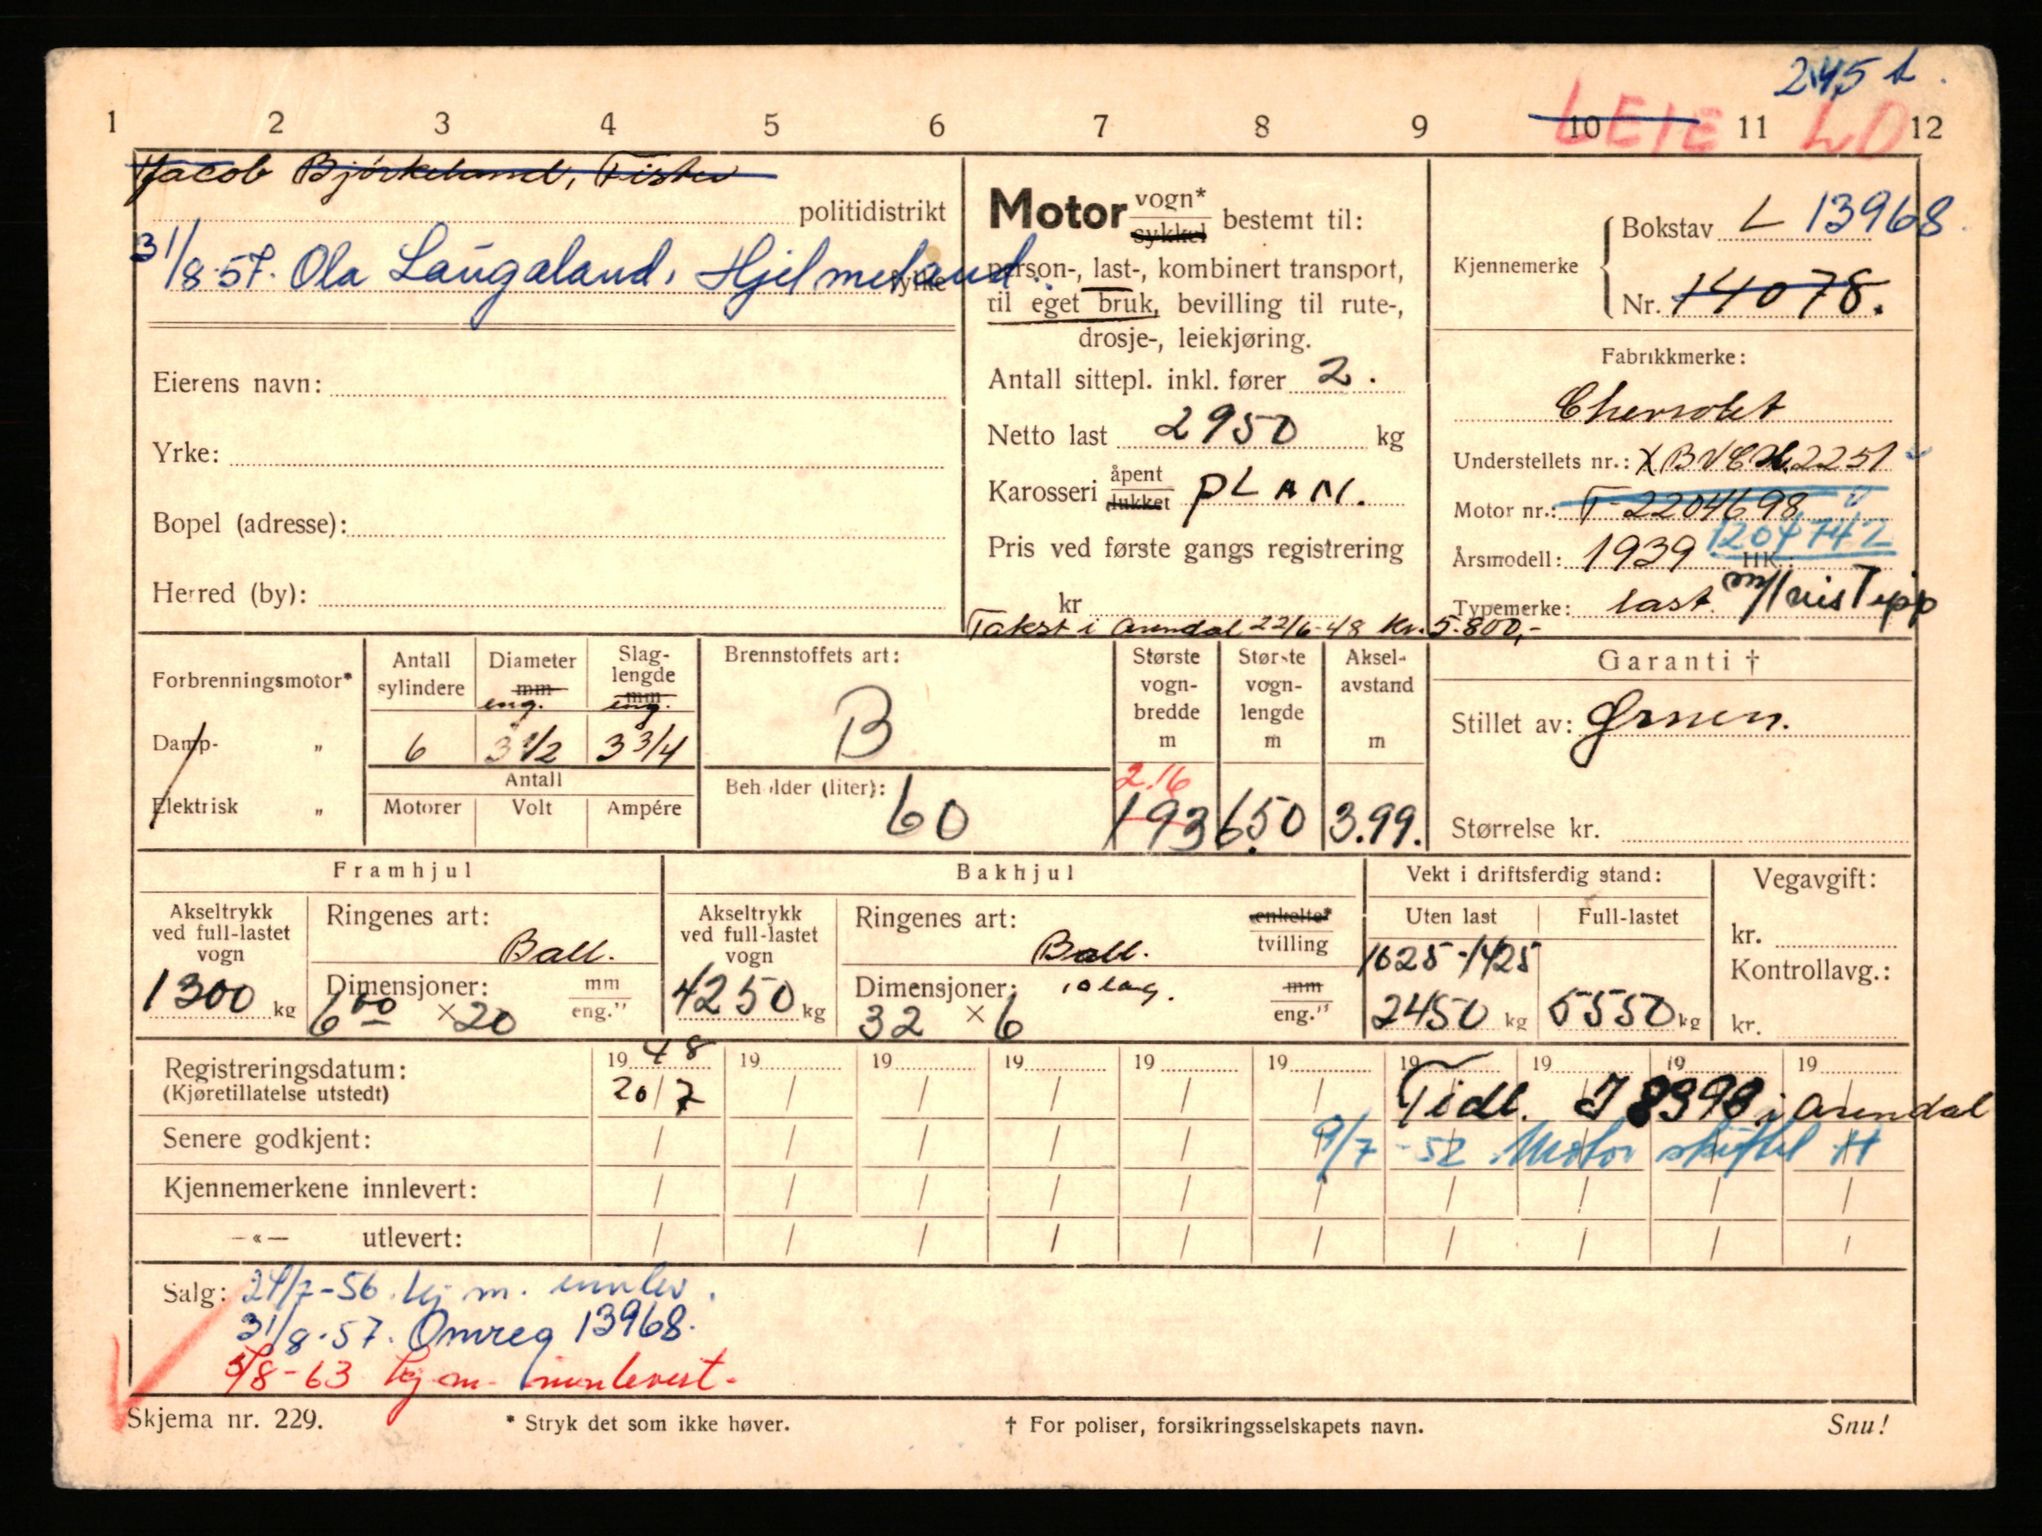 245 t.
1 2 3 4 5 6 7 8 9 10 11 12
LEIE LD
Jacob Bjørkeland, Tistev
politidistrikt
31/8-57. Ola Laugaland, Hjelmeland
fylke
Eierens navn:
Yrke:
Bopel (adresse):
Herred (by):
Motor vogn* sykkel bestemt til:
person-, last-, kombinert transport,
til eget bruk, bevilling til rute-,
drosje-, leiekjøring.
Antall sittepl. inkl. fører 2.
Netto last 2950 kg
Karosseri åpent lukket PLAN.
Pris ved første gangs registrering
kr
Takst i Arendal 22/6-48 Kr. 5.800,-
Kjennemerke
Bokstav L 13968
Nr. 14078.
Fabrikkmerke:
Chevrolet
Understellets nr.: XBVCH.2251
Motor nr.: T-2204698
1204742
Årsmodell: 1939 HK.:
Typemerke: last. m/Huis Tipp
Forbrenningsmotor*
Damp- "
Elektrisk "
Antall sylindere
6
Diameter mm
eng.
3 1/2
Slag-lengde mm
eng.
3 3/4
Antall
Motorer Volt Ampére
Brennstoffets art:
B
Beholder (liter): 60
Største vogn-bredde m
2.16
193
Største vogn-lengde m
6.50
Aksel-avstand m
3.99.
Garanti †
Stillet av: Ørnen.
Størrelse kr.
Framhjul
Akseltrykk ved full-lastet vogn
1300 kg
Ringenes art:
Ball.
Dimensjoner: mm eng."
6 00 × 20
Bakhjul
Akseltrykk ved full-lastet vogn
4250 kg
Ringenes art: enkelte* tvilling
Ball.
Dimensjoner: 10 lag. mm eng."
32 × 6
Vekt i driftsferdig stand:
Uten last Full-lastet
1025-1425
2450 kg 5550 kg
Vegavgift:
kr.
Kontrollavg.:
kr.
Registreringsdatum: 1948 19 19 19 19 19 19 19 19 19
(Kjøretillatelse utstedt) 20/7 / / / / / Tidl. I 8398 i Arendal
Senere godkjent: / / / / / 9/7-52 Motor skiftet H
Kjennemerkene innlevert: / / / / / / / / / /
—«— utlevert: / / / / / / / / / /
Salg: 24/7-56. kj m. innlev.
31/8-57. Omreg 13968.
5/8-63 kj m. innlevert.
Skjema nr. 229. * Stryk det som ikke høver. † For poliser, forsikringsselskapets navn. Snu!